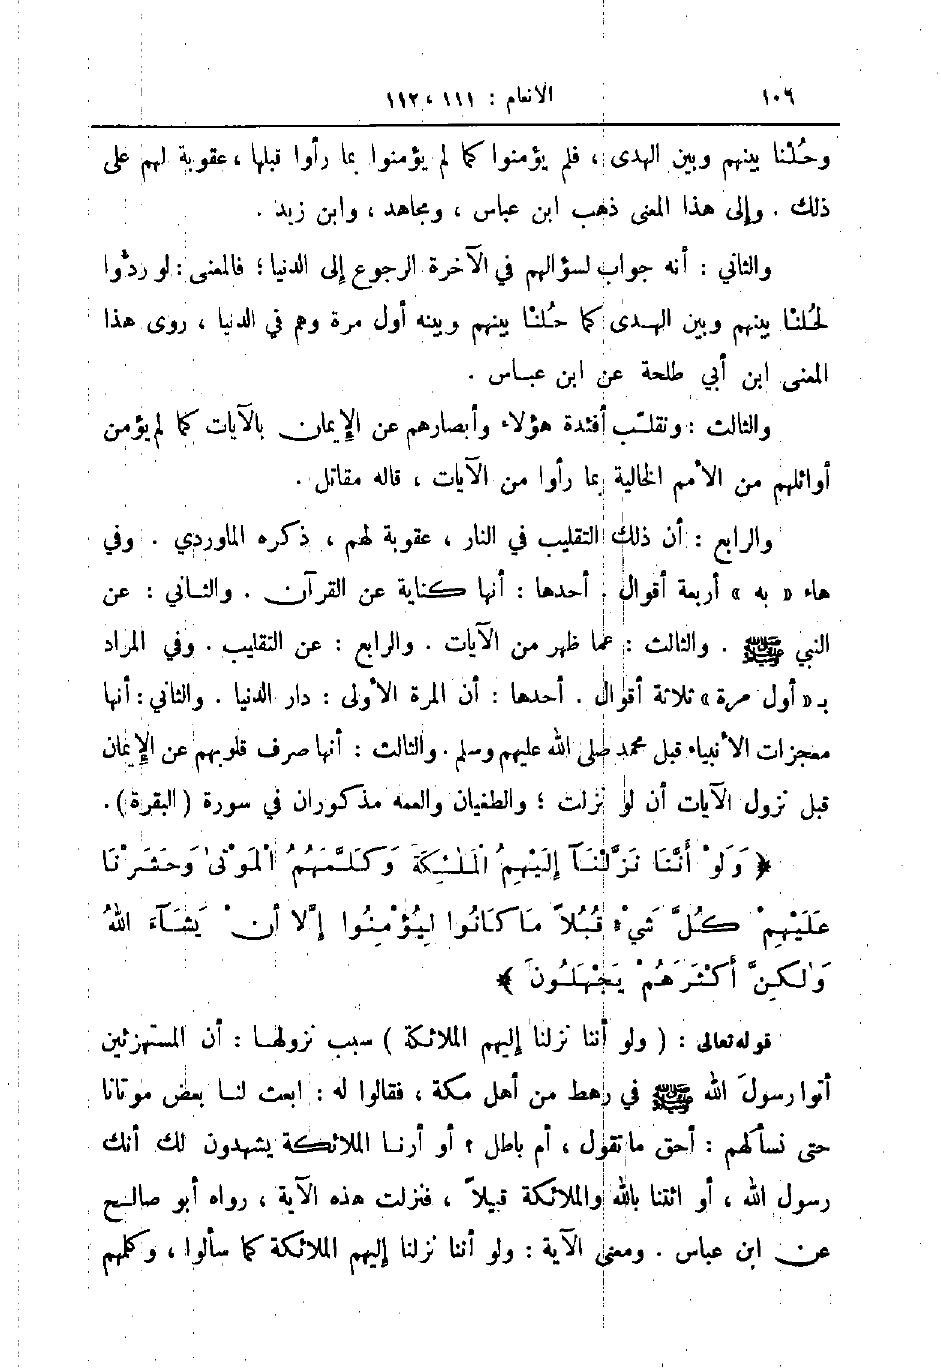 ١٠٦ الانعام : ١١١ ، ١١٢
وحُلْنا بينهم وبين الهدى ، فلم يؤمنوا كما لم يؤمنوا بما رأوا قبلها ، عقوبة لهم على
ذلك . وإلى هذا المعنى ذهب ابن عباس ، ومجاهد ، وابن زيد .
والثاني : أنه جواب لسؤالهم في الآخرة الرجوع إلى الدنيا ؛ فالمعنى : لو ردُّوا
لحُلنْا بينهم وبين الهدى كما حُلنْا بينهم وبينه أول مرة وهم في الدنيا ، روى هذا
المعنى ابن أبي طلحة عن ابن عباس .
والثالث : ونقلّب أفئدة هؤلاء وأبصارهم عن الإيمان بالآيات كما لم يؤمن
أوائلهم من الأمم الخالية بما رأوا من الآيات ، قاله مقاتل .
والرابع : أن ذلك التقليب في النار ، عقوبة لهم ، ذكره الماوردي . وفي
هاء « به » أربعة أقوال . أحدها : أنها كناية عن القرآن . والثاني : عن
النبي ﷺ . والثالث : عما ظهر من الآيات . والرابع : عن التقليب . وفي المراد
بـ « أول مرة » ثلاثة أقوال . أحدها : أن المرة الأولى : دار الدنيا . والثاني : أنها
معجزات الأنبياء قبل محمد صلى الله عليهم وسلم . والثالث : أنها صرف قلوبهم عن الإيمان
قبل نزول الآيات أن لو نزلت ؛ والطغيان والعمه مذكوران في سورة ( البقرة ) .
﴿ وَلَوْ أَنَّنَا نَزَّلْنَآ إِلَيْهِمُ الْمَلٰئِكَةَ وَكَلَّمَهُمُ الْمَوْتىٰ وَحَشَرْنَا
عَلَيْهِمْ كُلَّ شَيْءٍ قُبُلاً مَا كَانُوا لِيُؤْمِنُوا إِلَّا أَنْ يَشَآءَ اللهُ
وَلٰكِنَّ أَكْثَرَهُمْ يَجْهَلُونَ ﴾
قوله تعالى : ( ولو أننا نزلنا إليهم الملائكة ) سبب نزولها : أن المستهزئين
أتوا رسولَ الله ﷺ في رهط من أهل مكة ، فقالوا له : ابعث لنا بعض موتانا
حتى نسألهم : أحق ما تقول ، أم باطل ؟ أو أرنا الملائكة يشهدون لك أنك
رسول الله ، أو ائتنا بالله والملائكة قبيلاً ، فنزلت هذه الآية ، رواه أبو صالح
عن ابن عباس . ومعنى الآية : ولو أننا نزلنا إليهم الملائكة كما سألوا ، وكلمهم